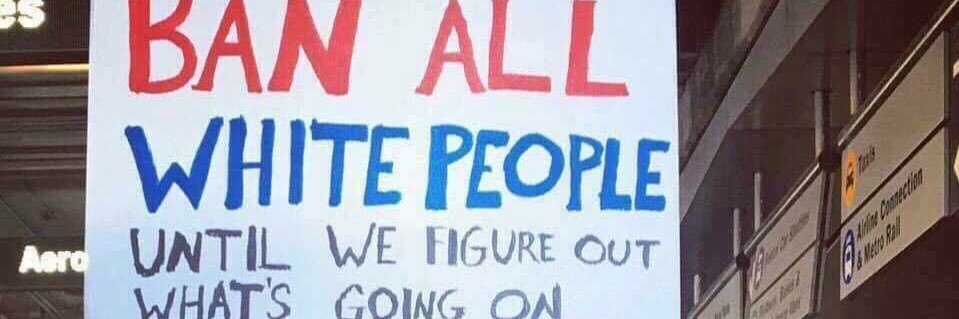 es
BAN ALL
WHITE PEOPLE
UNTIL WE FIGURE OUT
WHAT'S GOING ON
Aero
Taxis
Airline Connection
& Metro Rail